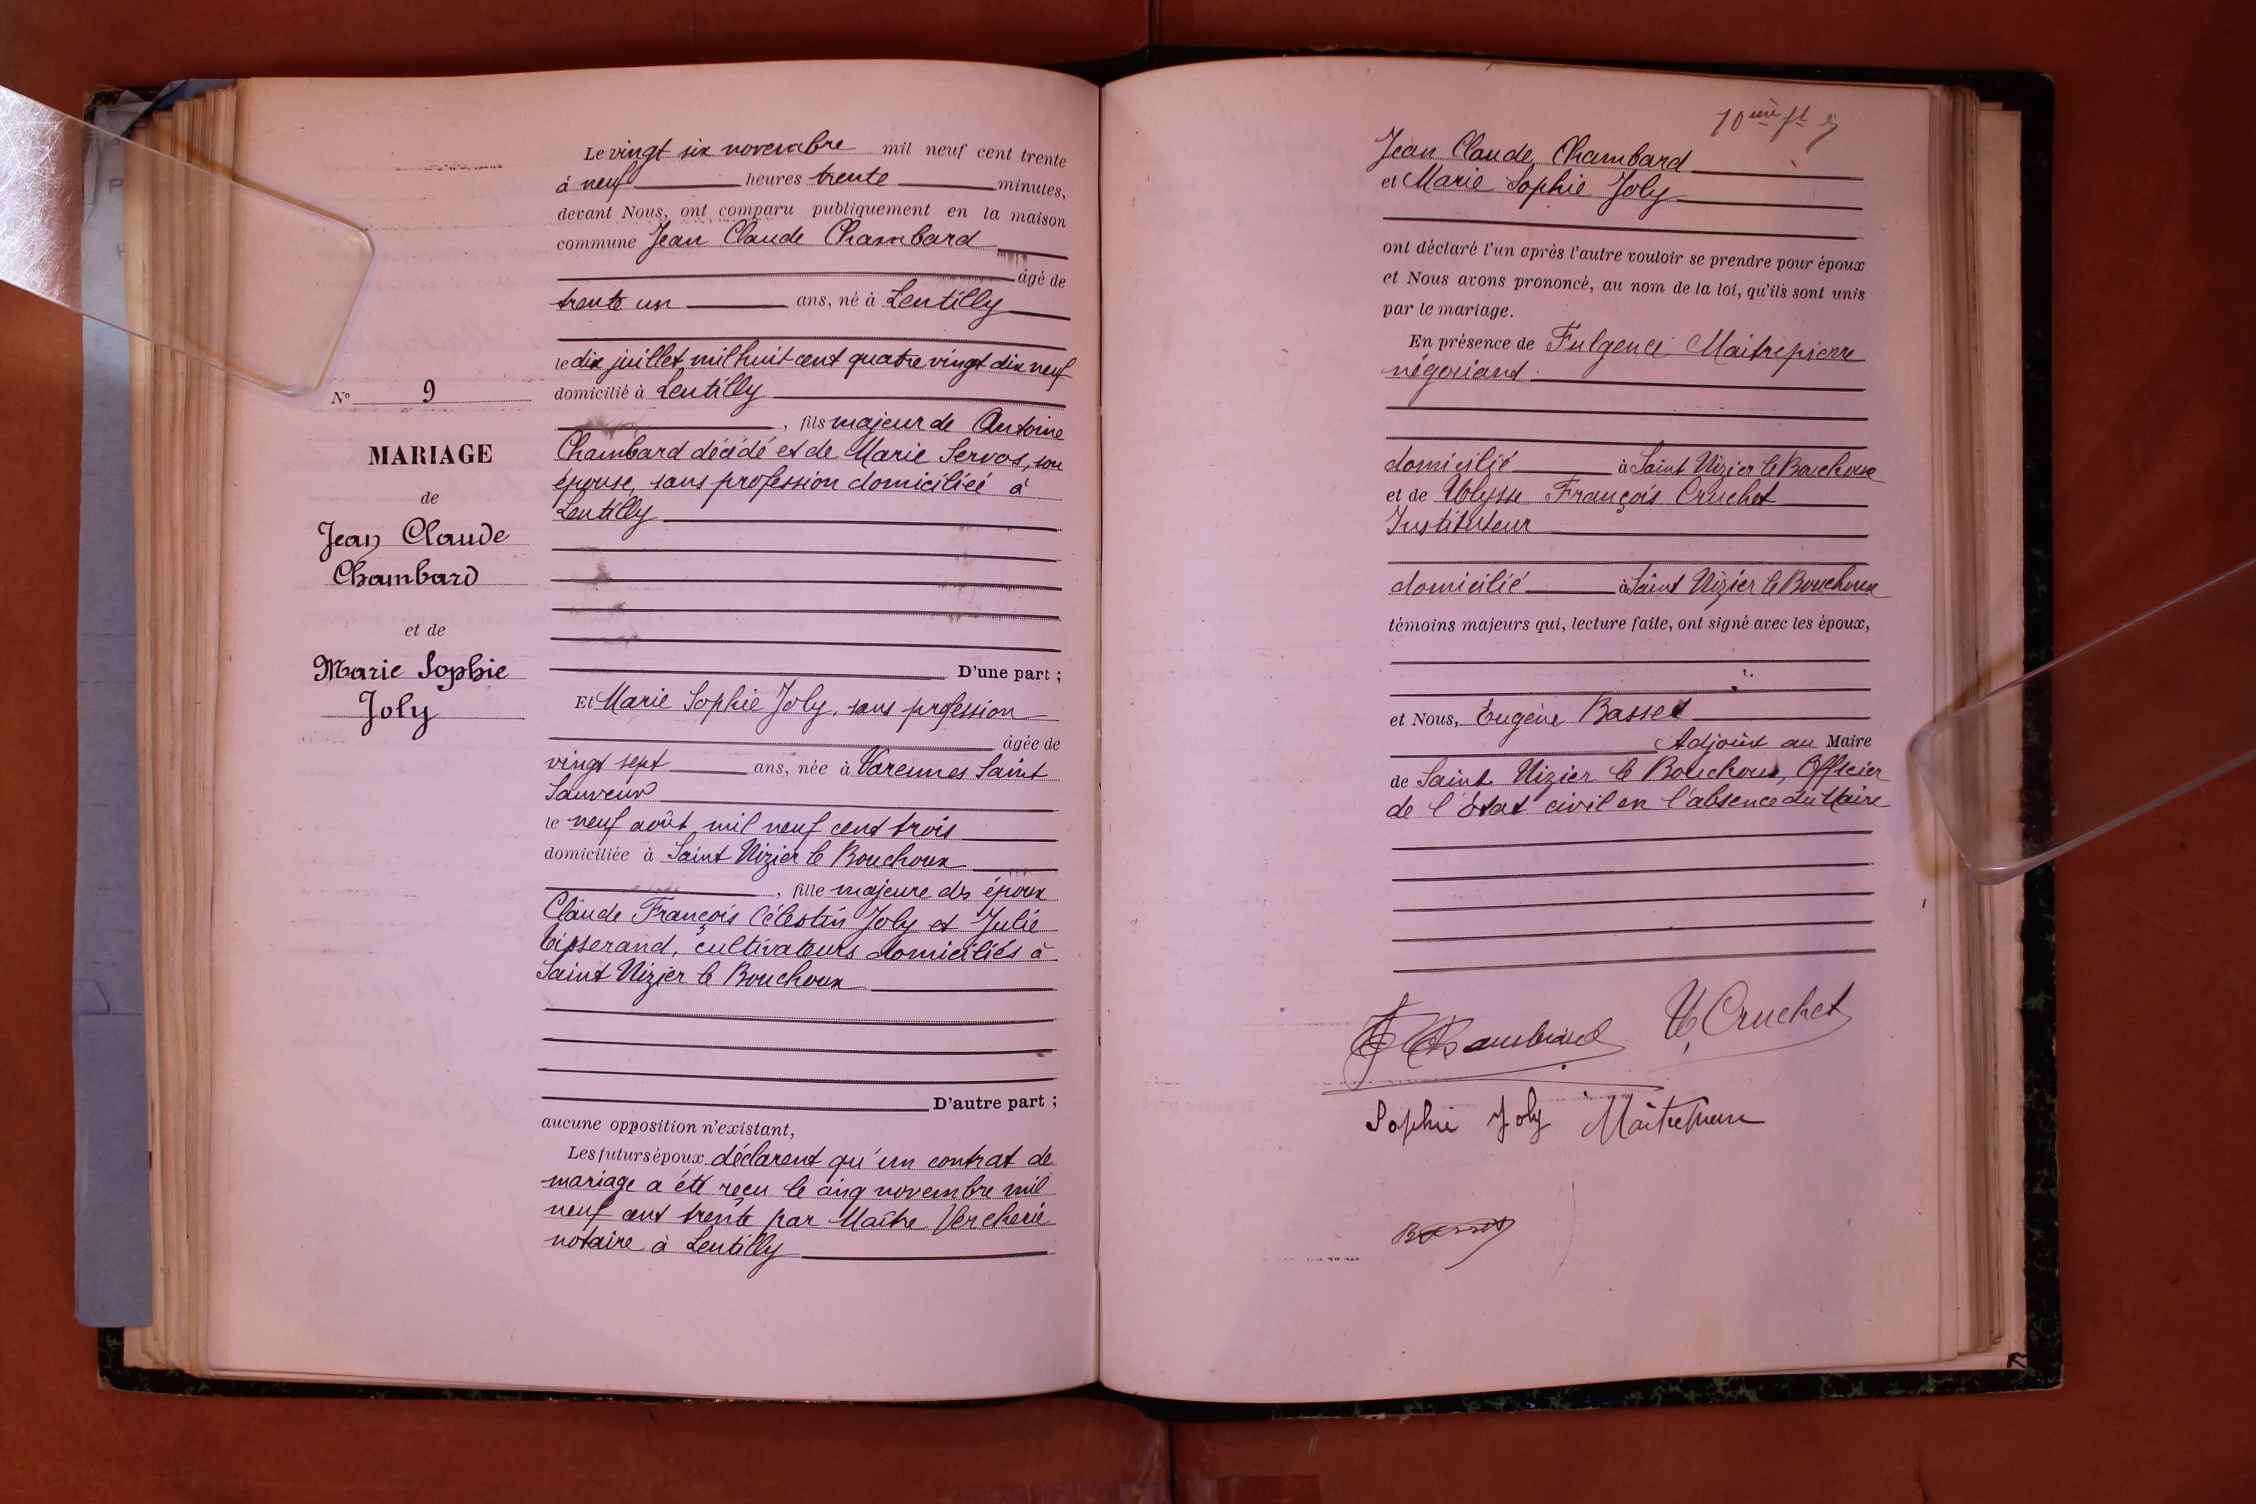 N° 9
MARIAGE
de
Jean Claude
Chambard
et de
Marie Sophie
Joly
Le vingt six novembre mil neuf cent trente
à neuf heures trente minutes,
devant Nous, ont comparu publiquement en la maison
commune Jean Claude Chambard
âgé de
trente un ans, né à Lentilly
le dix juillet mil huit cent quatre vingt dix neuf
domicilié à Lentilly
, fils majeur de Antoine
Chambard décédé et de Marie Servos, son
épouse, sans profession domiciliée à
Lentilly
D'une part ;
Et Marie Sophie Joly, sans profession
âgée de
vingt sept ans, née à Varennes Saint
Sauveur
le neuf août mil neuf cent trois
domiciliée à Saint Nizier le Bouchoux
, fille majeure des époux
Claude François Célestin Joly et Julie
Tisserand, cultivateurs domiciliés à
Saint Nizier le Bouchoux
D'autre part ;
aucune opposition n'existant,
Les futurs époux déclarent qu'un contrat de
mariage a été reçu le cinq novembre mil
neuf cent trente par Maître Vercherie
notaire à Lentilly
10ème ft
Jean Claude Chambard
et Marie Sophie Joly
ont déclaré l'un après l'autre vouloir se prendre pour époux
et Nous avons prononcé, au nom de la loi, qu'ils sont unis
par le mariage.
En présence de Fulgence Maitrepierre
négociant
domicilié à Saint Nizier le Bouchoux
et de Ulysse François Cruchet
Instituteur
domicilié à Saint Nizier le Bouchoux
témoins majeurs qui, lecture faite, ont signé avec les époux,
et Nous, Eugène Basset
Adjoint au Maire
de Saint Nizier le Bouchoux, Officier
de l'état civil en l'absence du Maire
Chambard U. Cruchet
Sophie Joly Maitrepierre
Basset